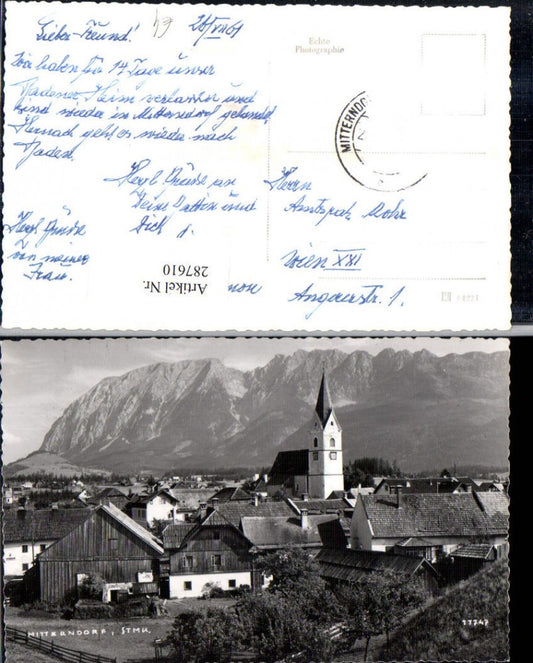 64
26/VII 61
Lieber Freund!
Wir haben für 14 Tage unser
Badener Heim verlassen und
sind wieder in Mitterndorf gelandet
Hernach geht es wieder nach
Baden.
Herzl Grüße an
Deine Gattin und
Dich
Herzl Grüße
von meiner
Frau.
Echte
Photographie
MITTERNDO
Herrn
Amtsrat
Wien XXI
Angererstr. 1.
Artikel Nr.
287610
MITTERNDORF, STMK.